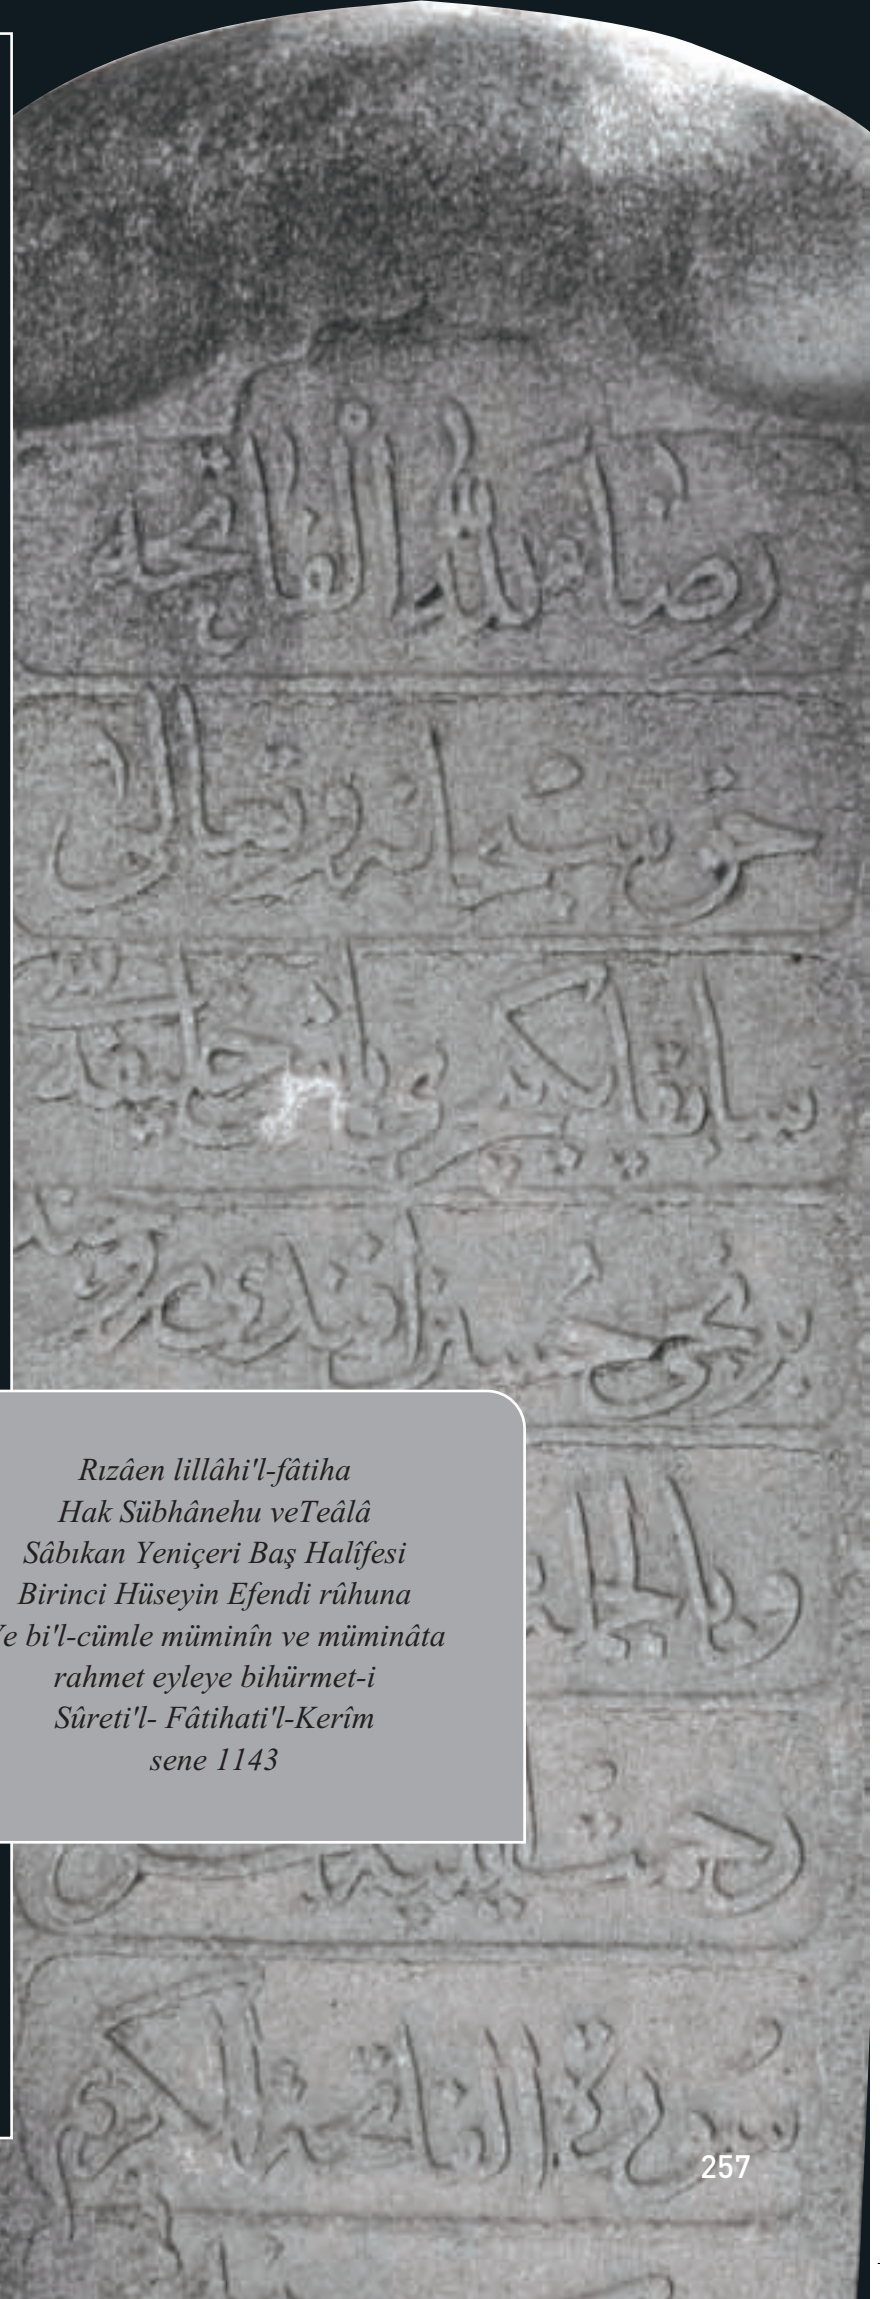 رضاء لله الفاتحه
حق سبحانه و تعالى
سابقا يكيچرى باش خليفه سى
برنجى حسين افندى روحنه
رحمت ايليه
سورة الفاتحة الكريم
Rızâen lillâhi'l-fâtiha
Hak Sübhânehu veTeâlâ
Sâbıkan Yeniçeri Baş Halîfesi
Birinci Hüseyin Efendi rûhuna
Ve bi'l-cümle müminîn ve müminâta
rahmet eyleye bihürmet-i
Sûreti'l- Fâtihati'l-Kerîm
sene 1143
257